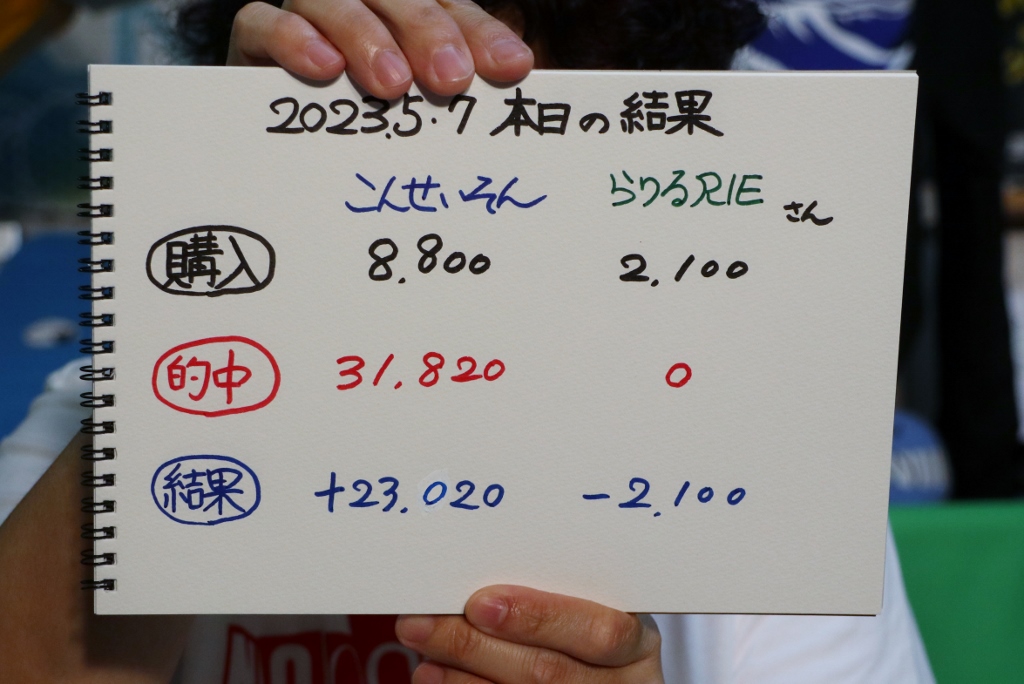 2023.5.7 本日の結果
こんせいそん らりるRIE さん
購入 8.800 2.100
的中 31.820 0
結果 +23.020 -2.100